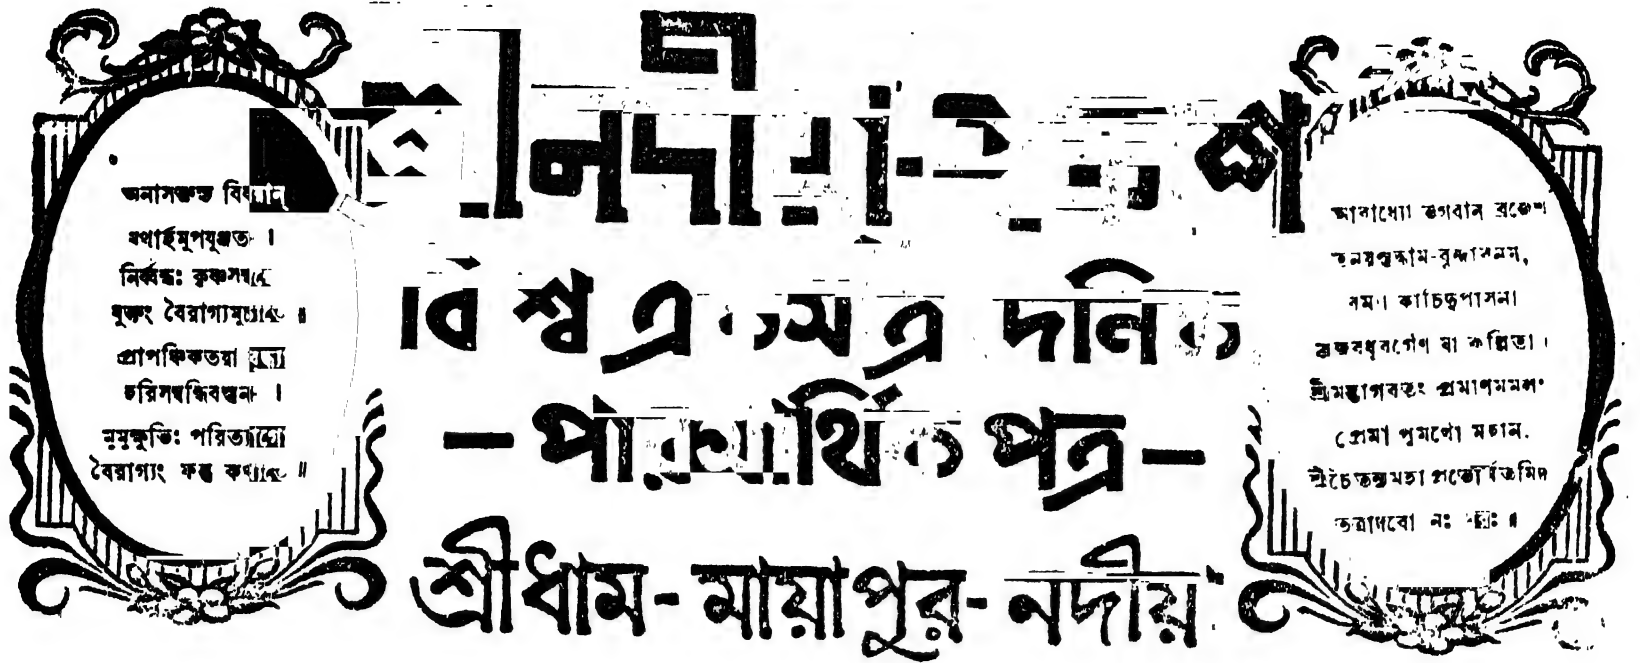 অনাসক্তস্য বিষয়ান্
যথার্হমুপযুঞ্জতঃ ।
নির্ব্বন্ধঃ কৃষ্ণসম্বন্ধে
যুক্তং বৈরাগ্যমুচ্যতে ॥
প্রাপঞ্চিকতয়া বুদ্ধ্যা
হরিসম্বন্ধিবস্তুনঃ ।
মুমুক্ষুভিঃ পরিত্যাগো
বৈরাগ্যং ফল্গু কথ্যতে ॥
শ্রীনদীয়া-প্রকাশ
বিশ্বে একমাত্র দৈনিক
— পারমার্থিক পত্র —
শ্রীধাম-মায়াপুর-নদীয়া
আরাধ্যো ভগবান্ ব্রজেশ
তনয়স্তদ্ধাম-বৃন্দাবনম্,
রম্যা কাচিদুপাসনা
ব্রজবধূবর্গেণ যা কল্পিতা ।
শ্রীমদ্ভাগবতং প্রমাণমমলং
প্রেমা পুমর্থো মহান্,
শ্রীচৈতন্যমহাপ্রভোর্মতমিদং
তত্রাদরো নঃ পরঃ ॥